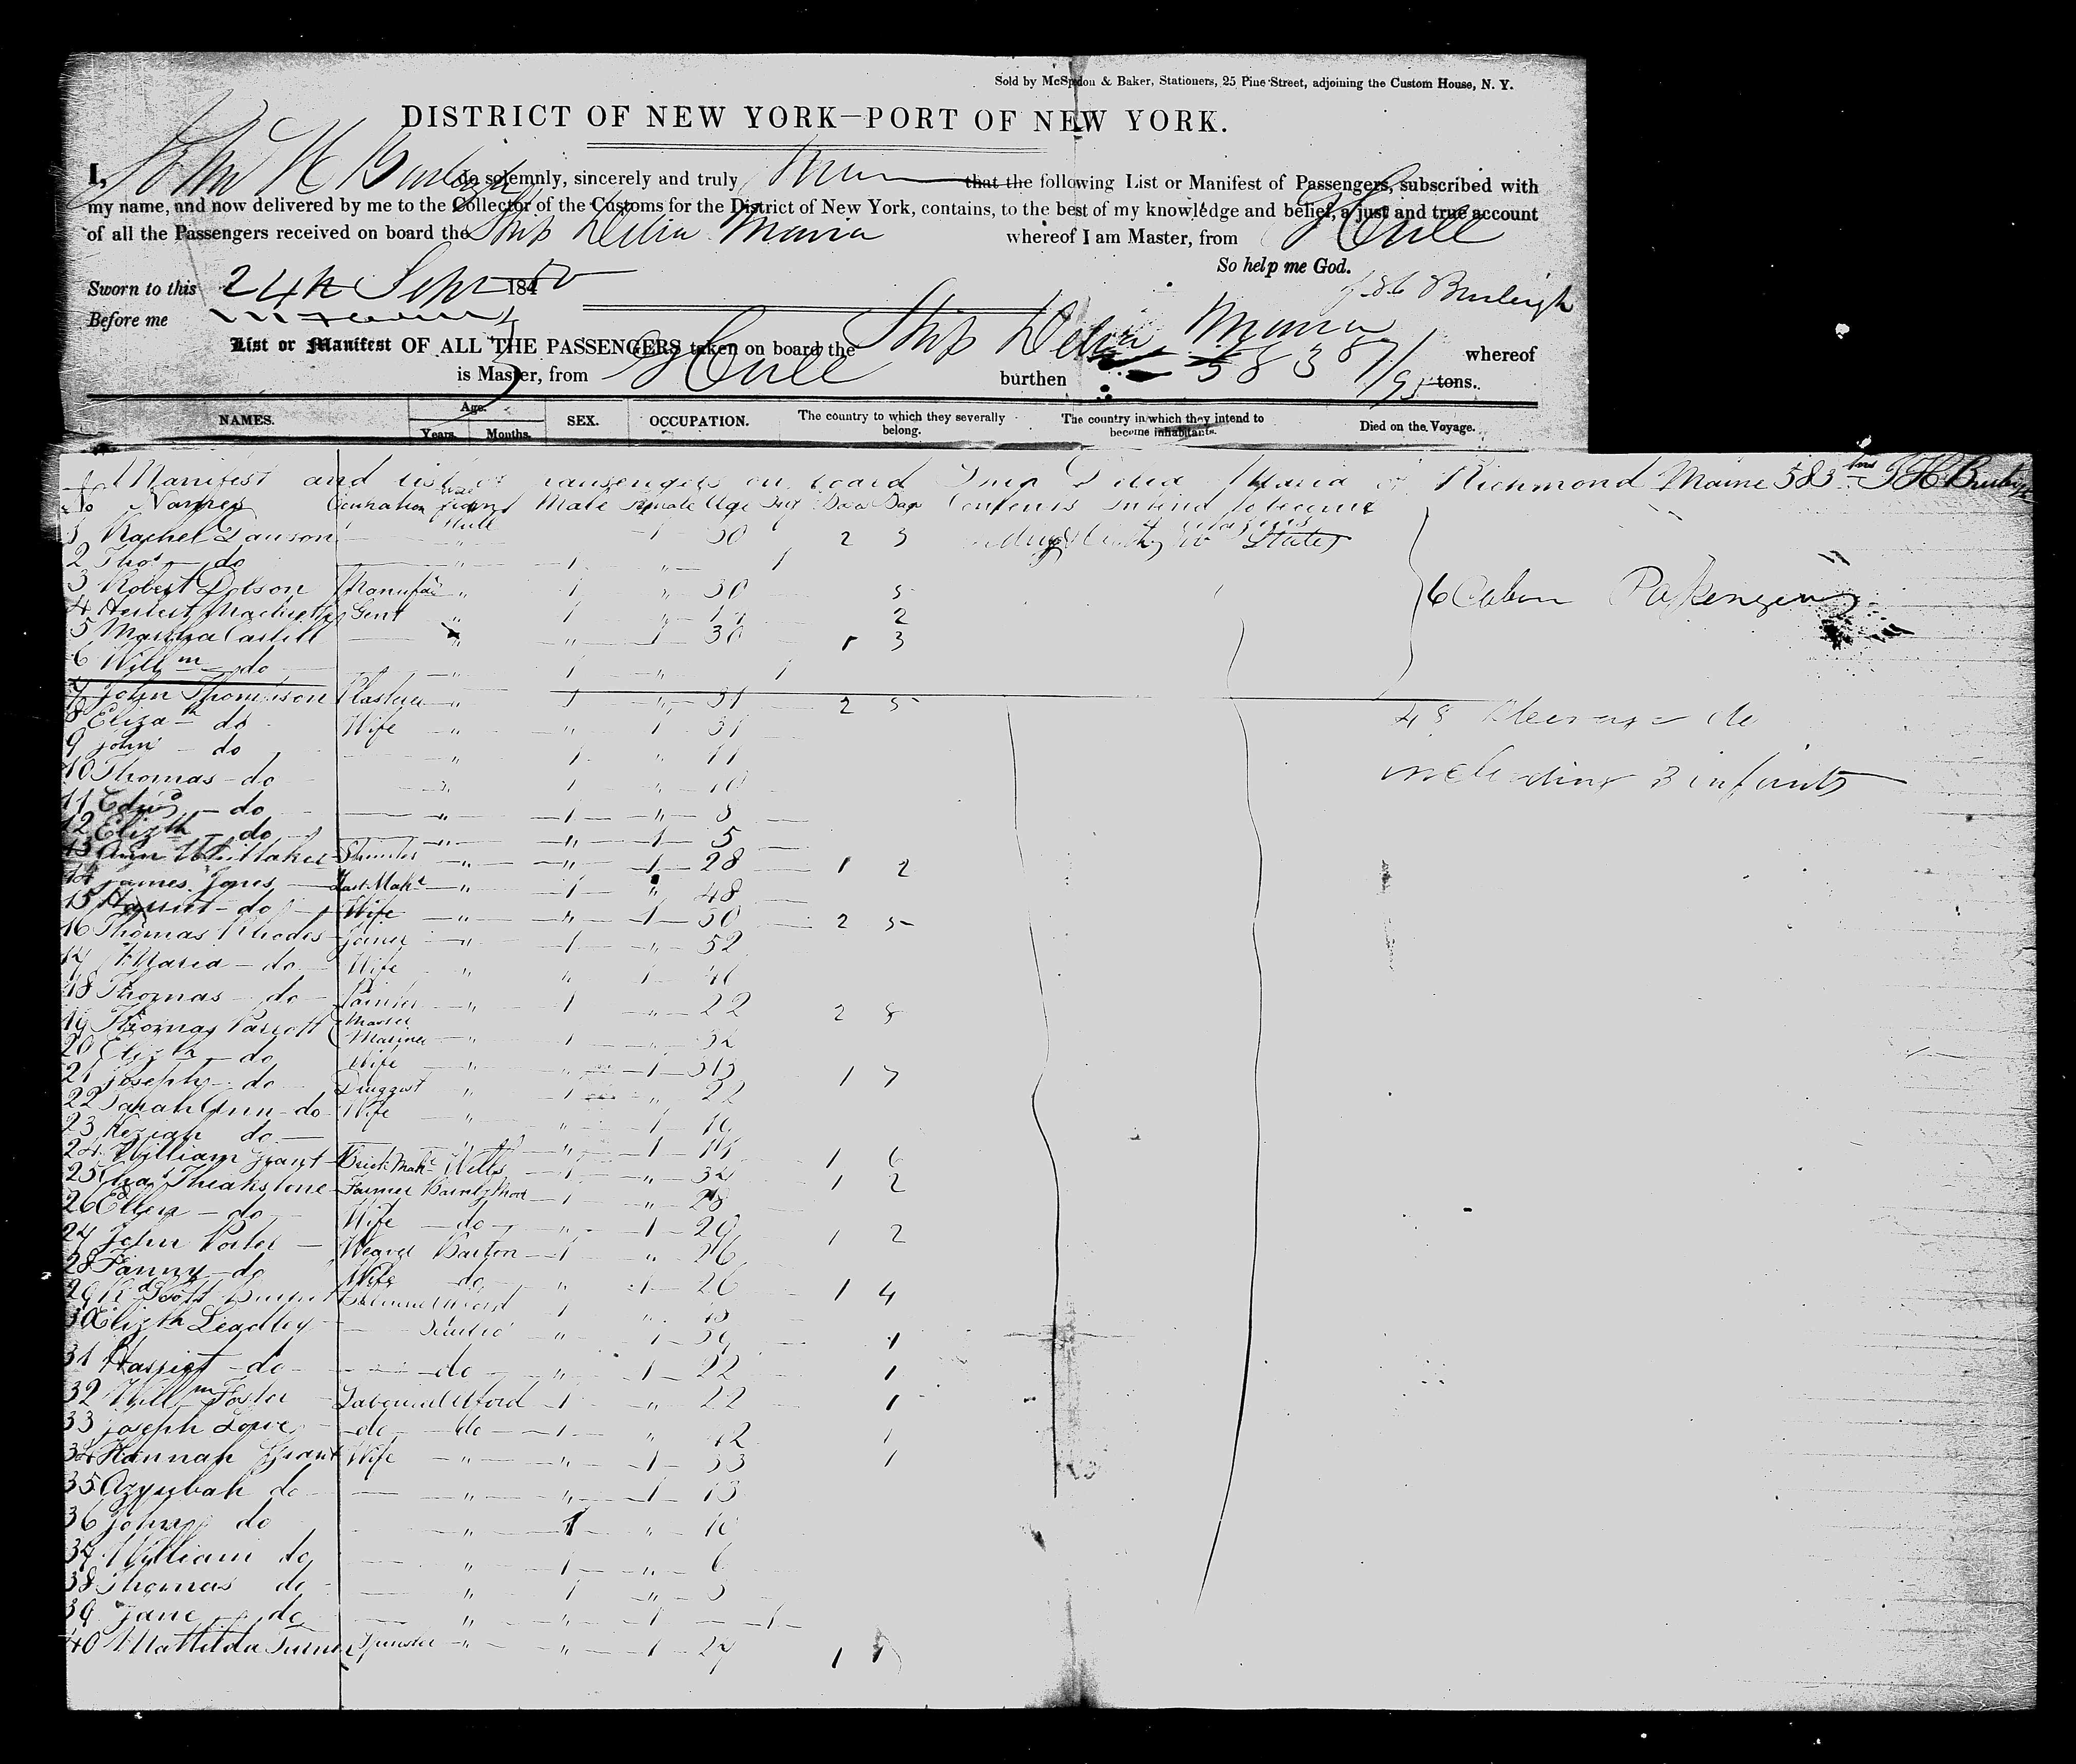 Sold by McSpedon & Baker, Stationers, 25 Pine Street, adjoining the Custom House, N. Y.
DISTRICT OF NEW YORK—PORT OF NEW YORK.
I, John H Burleigh do solemnly, sincerely and truly that the following List or Manifest of Passengers, subscribed with
my name, and now delivered by me to the Collector of the Customs for the District of New York, contains, to the best of my knowledge and belief, a just and true account
of all the Passengers received on board the Ship Delia Maria whereof I am Master, from Hull
So help me God.
Sworn to this 24th Sept 184 Burleigh
Before me
List or Manifest OF ALL THE PASSENGERS taken on board the Ship Delia Maria whereof
is Master, from Hull burthen 583 87/95 tons.
NAMES. Age. Years. Months. SEX. OCCUPATION. The country to which they severally belong. The country in which they intend to become inhabitants. Died on the Voyage.
Manifest and list of passengers on board Ship Delia Maria of Richmond Maine 583 tns J H Burleigh
No Names Occupation from Male Female Age Boxes Bags Contents intend to become citizens
Hull
1 Rachel Dawson " 1 30 2 3 States
2 Thos do " 1 " 1
3 Robert Dobson Manufac " 1 " 30 5
4 Gent " 1 " 2 6 Cabin Passengers
5 Martha " " 1 30 1 3
6 Willm do " 1 " 1
7 John Thompson Plasterer " 1 " 31 2 5
8 Elizath do Wife " 1 31 48 Steerage do
9 John do " 1 " 11
10 Thomas do " 1 " 10 including 3 infants
11 Edwd do " 1 "
12 Elizth do " " 1 5
13 Ann Whittaker " " 1 28 1 2
14 James Jones Last Makr " 1 " 48
15 Harriet do Wife " " 1 50 2 5
16 Thomas Rhodes Joiner " 1 " 52
17 Maria do Wife " " 1
18 Thomas do Painter " 1 " 22 2 8
19 Thomas Parrott Master Mariner " 1 32
20 Elizth do Wife " 1
21 Joseph do Druggist " 1 " 22 1 7
22 Sarah Ann do Wife " 1
23 Keziah do " " 1
24 William Grant Brick Makr 1 " 32 1 6
25 Chas Theakstone Farmer 1 " 28 1 2
26 Ellen do Wife do " 1 20
27 John Porter Weaver Barton 1 " 26 1 2
28 Fanny do Wife do " 1 26
29 1 " 1 4
30 Elizth Leadley " 1 1
31 Harriet do do " 1 22 1
32 Willm Foster Labourer Ulford 1 " 22 1
33 Joseph Lowe do do 1 " 42 1
34 Hannah Grant Wife " " 1 33 1
35 Azyubah do " " 1 13
36 John do " 1 " 10
37 William do " 1 " 6
38 Thomas do " 1 " 3
39 Jane do " " 1 1
40 Mattilda Turner Spinster " " 1 27 1 1